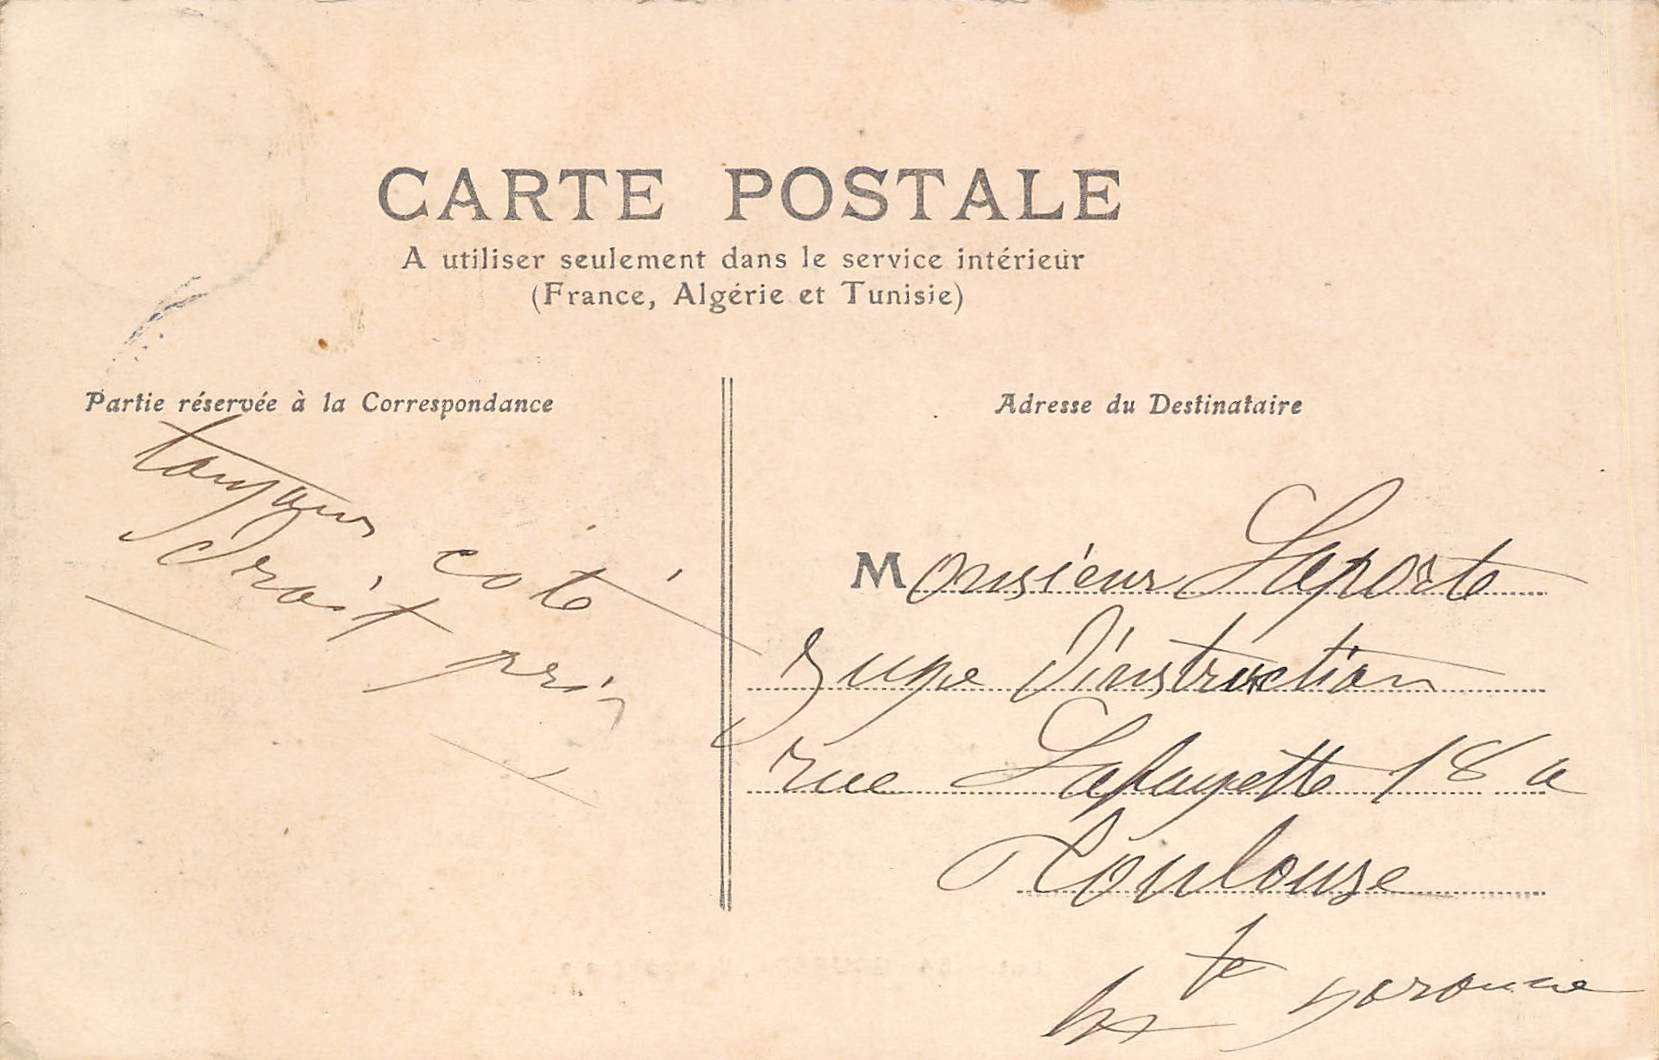 CARTE POSTALE
A utiliser seulement dans le service intérieur
(France, Algérie et Tunisie)
Partie réservée à la Correspondance
toujours coté
droit
Adresse du Destinataire
Monsieur Laporte
D'instruction
rue Lafayette 18 a
Toulouse
hte garonne